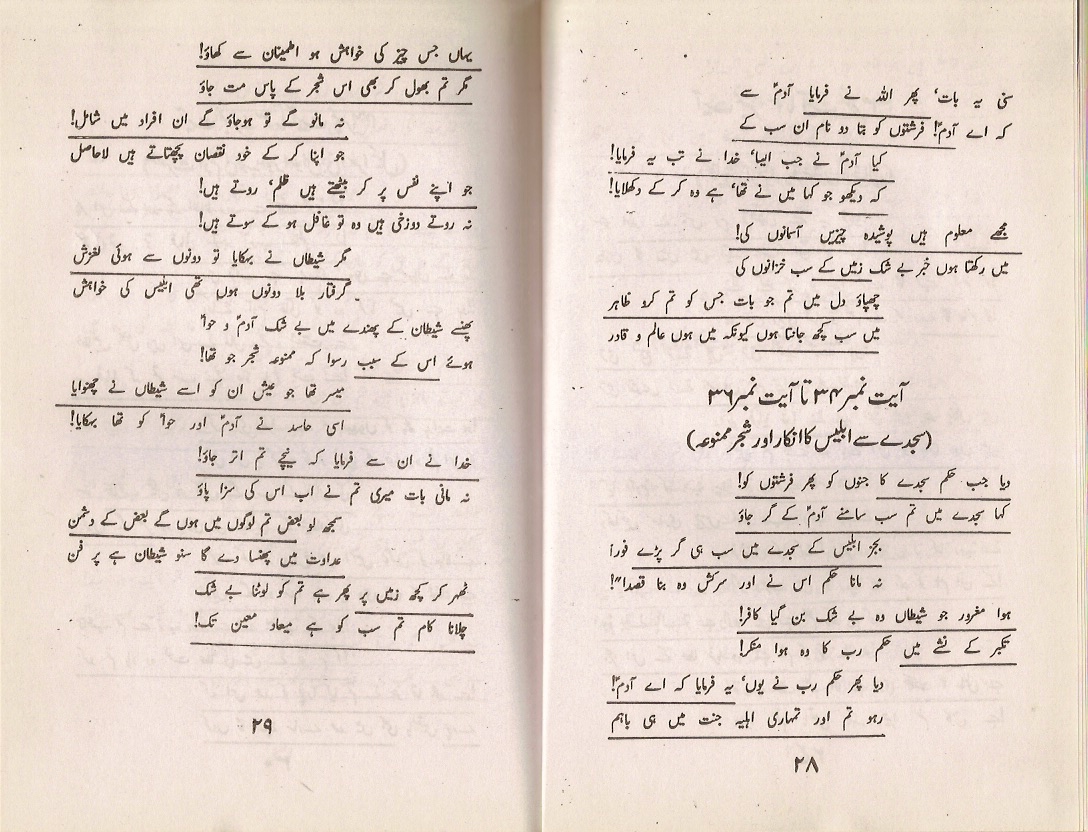 سنی یہ بات، پھر اللہ نے فرمایا آدمؑ سے
کہ اے آدمؑ! فرشتوں کو بتا دو نام ان سب کے
کیا آدمؑ نے جب ایسا، خدا نے تب یہ فرمایا!
کہ دیکھو جو کہا میں نے تھا، ہے وہ کر کے دکھلایا!
مجھے معلوم ہیں پوشیدہ چیزیں آسمانوں کی!
میں رکھتا ہوں خبر بے شک زمیں کے سب خزانوں کی
چھپاؤ دل میں تم جو بات جس کو تم کرو ظاہر
میں سب کچھ جانتا ہوں کیونکہ میں ہوں عالم و قادر
آیت نمبر ۳۴ تا آیت نمبر ۳۶
(سجدے سے ابلیس کا انکار اور شجر ممنوعہ)
دیا جب حکم سجدے کا جنوں کو پھر فرشتوں کو!
کہا سجدے میں تم سب سامنے آدمؑ کے گر جاؤ
بجز ابلیس کے سجدے میں سب ہی گر پڑے فورا
نہ مانا حکم اس نے اور سرکش وہ بنا قصدا"!
ہوا مغرور جو شیطاں وہ بے شک بن گیا کافر!
تکبر کے نشے میں حکم رب کا وہ ہوا منکر!
دیا پھر حکم رب نے یوں، یہ فرمایا کہ اے آدمؑ!
رہو تم اور تمہاری اہلیہ جنت میں ہی باہم
۲۸
یہاں جس چیز کی خواہش ہو اطمینان سے کھاؤ!
مگر تم بھول کر بھی اس شجر کے پاس مت جاؤ
نہ مانو گے تو ہوجاؤ گے ان افراد میں شامل!
جو اپنا کر کے خود نقصان پچھتاتے ہیں لاحاصل
جو اپنے نفس پر کر بیٹھتے ہیں ظلم، روتے ہیں!
نہ روتے دوزخی ہیں وہ تو غافل ہو کے سوتے ہیں!
مگر شیطاں نے بہکایا تو دونوں سے ہوئی لغزش
گرفتار بلا دونوں ہوں تھی ابلیس کی خواہش
پھنسے شیطان کے پھندے میں بے شک آدمؑ و حواؑ
ہوئے اس کے سبب رسوا کہ ممنوعہ شجر جو تھا!
میسر تھا جو عیش ان کو اسے شیطاں نے چھنوایا
اسی حاسد نے آدمؑ اور حواؑ کو تھا بہکایا!
خدا نے ان سے فرمایا کہ نیچے تم اتر جاؤ!
نہ مانی بات میری تم نے اب اس کی سزا پاؤ
سمجھ لو بعض تم لوگوں میں ہوں گے بعض کے دشمن
عداوت میں پھنسا دے گا سنو شیطان ہے پر فن
ٹھہر کر کچھ زمیں پر پھر ہے تم کو لوٹنا بے شک
چلانا کام تم سب کو ہے میعاد معین تک!
۲۹